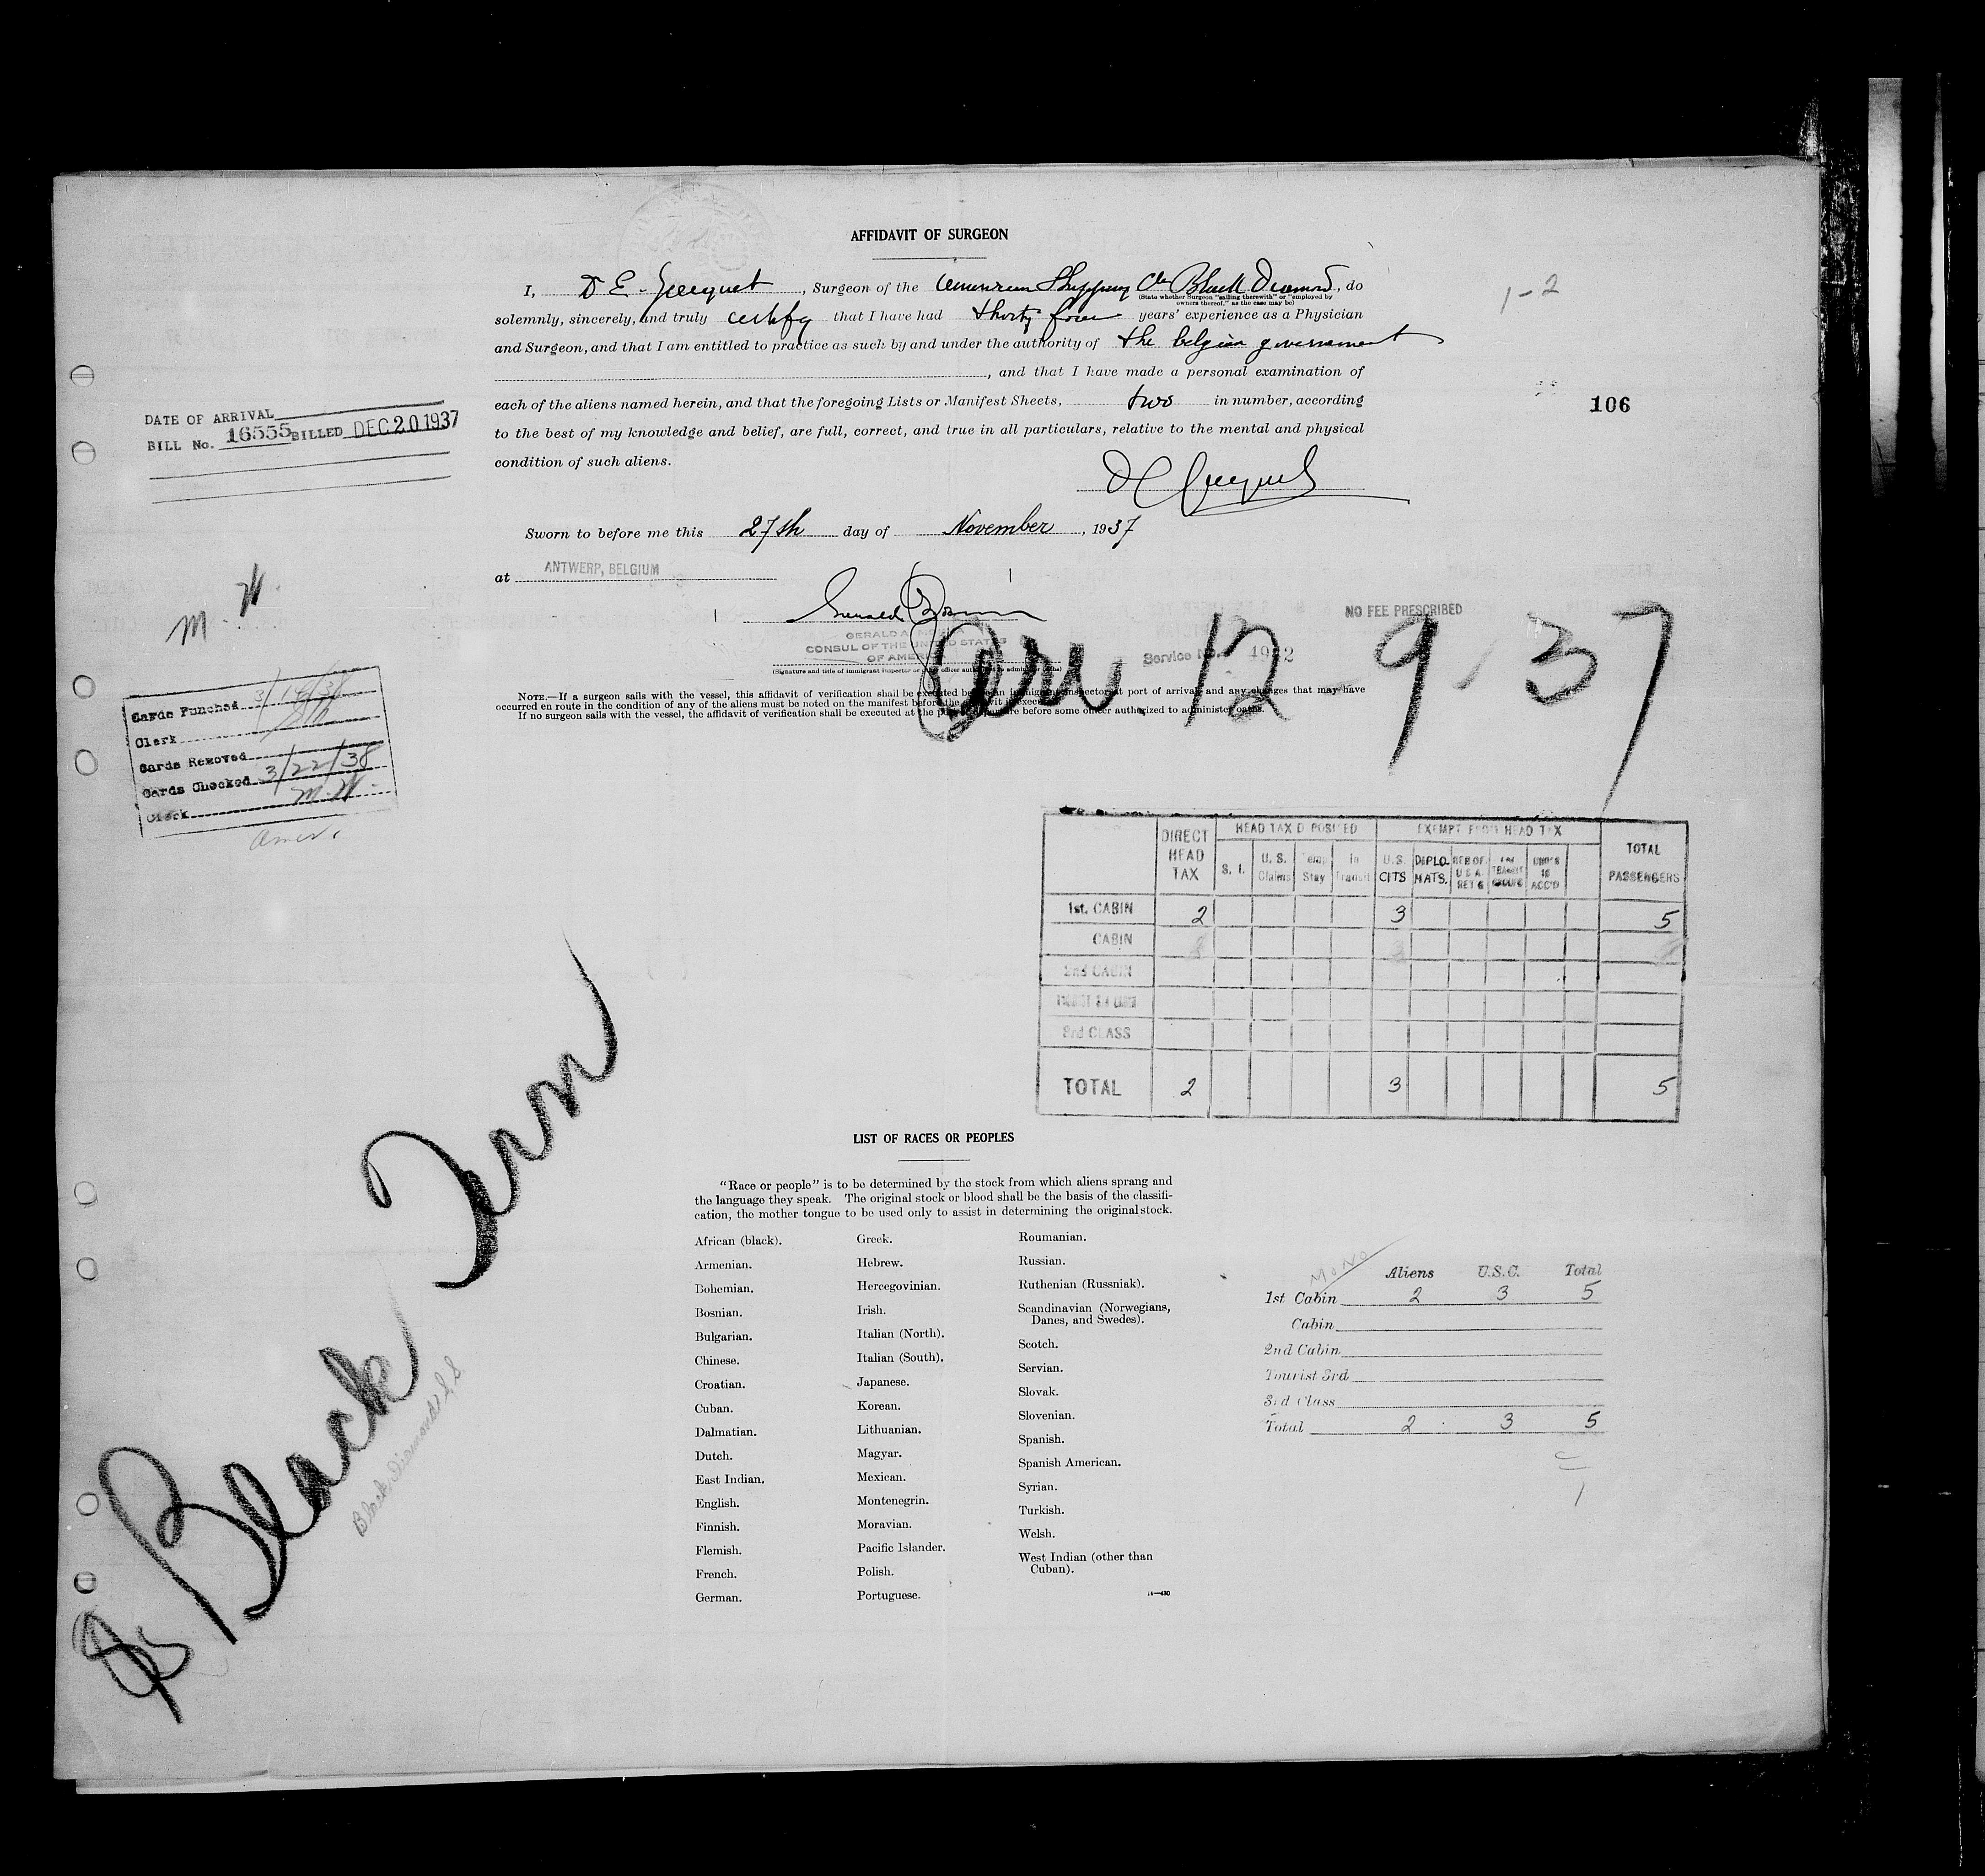 AFFIDAVIT OF SURGEON
I, D E. Jacquet, Surgeon of the American Shipping Co Black Diamond, do
(State whether Surgeon "sailing therewith" or "employed by
owners thereof," as the case may be)
solemnly, sincerely, and truly certify that I have had thirty four years' experience as a Physician
and Surgeon, and that I am entitled to practice as such by and under the authority of the belgian government
, and that I have made a personal examination of
each of the aliens named herein, and that the foregoing Lists or Manifest Sheets, two in number, according
to the best of my knowledge and belief, are full, correct, and true in all particulars, relative to the mental and physical
condition of such aliens.
Sworn to before me this 27th day of November, 1937
at ANTWERP, BELGIUM
GERALD A.
CONSUL OF THE UNITED STATES
OF AMERICA
(Signature and title of immigrant inspector or other officer authorized to administer oaths)
NO FEE PRESCRIBED
Service No. 4912
NOTE.—If a surgeon sails with the vessel, this affidavit of verification shall be executed before an immigrant inspector at port of arrival, and any changes that may have
occurred en route in the condition of any of the aliens must be noted on the manifest before the affidavit is executed.
If no surgeon sails with the vessel, the affidavit of verification shall be executed at the port of departure before some officer authorized to administer oaths.
1-2
106
DATE OF ARRIVAL
BILL No. 16555 BILLED DEC 20 1937
M. H.
Cards Punched 3/14/38
Clerk
Cards Removed
Cards Checked 3/22/38
Clerk M. H.
Arr 12 9 37
DIRECT HEAD TAX
HEAD TAX DEPOSITED
EXEMPT FROM HEAD TAX
TOTAL PASSENGERS
S. I. U. S. Claims Temp Stay In Transit U.S. CITS DIPLOMATS. RES OF U S A RET'G UND'R 16 ACC'D
1st. CABIN 2 3 5
CABIN
2nd CABIN
TOURIST 3rd CABIN
3rd CLASS
TOTAL 2 3 5
SS Black Tern
Black Diamond S.S.
LIST OF RACES OR PEOPLES
"Race or people" is to be determined by the stock from which aliens sprang and
the language they speak. The original stock or blood shall be the basis of the classifi-
cation, the mother tongue to be used only to assist in determining the original stock.
African (black).
Armenian.
Bohemian.
Bosnian.
Bulgarian.
Chinese.
Croatian.
Cuban.
Dalmatian.
Dutch.
East Indian.
English.
Finnish.
Flemish.
French.
German.
Greek.
Hebrew.
Hercegovinian.
Irish.
Italian (North).
Italian (South).
Japanese.
Korean.
Lithuanian.
Magyar.
Mexican.
Montenegrin.
Moravian.
Pacific Islander.
Polish.
Portuguese.
Roumanian.
Russian.
Ruthenian (Russniak).
Scandinavian (Norwegians,
Danes, and Swedes).
Scotch.
Servian.
Slovak.
Slovenian.
Spanish.
Spanish American.
Syrian.
Turkish.
Welsh.
West Indian (other than
Cuban).
14—480
Aliens U.S.C. Total
1st Cabin 2 3 5
Cabin
2nd Cabin
Tourist 3rd
3rd Class
Total 2 3 5